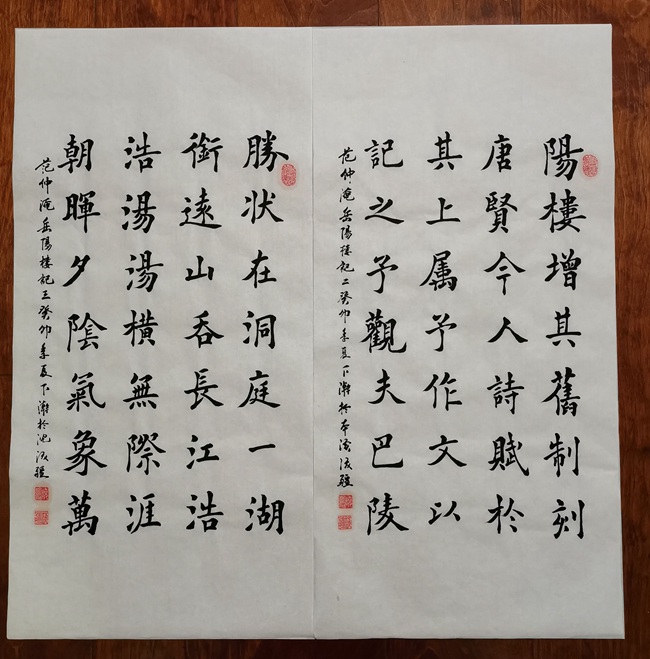 陽樓增其舊制刻
唐賢今人詩賦於
其上属予作文以
記之予觀夫巴陵
范仲淹岳陽樓記二癸卯季夏下澣於
勝状在洞庭一湖
銜遠山吞長江浩
浩湯湯橫無際涯
朝暉夕陰氣象萬
范仲淹岳陽樓記三癸卯季夏下澣於池